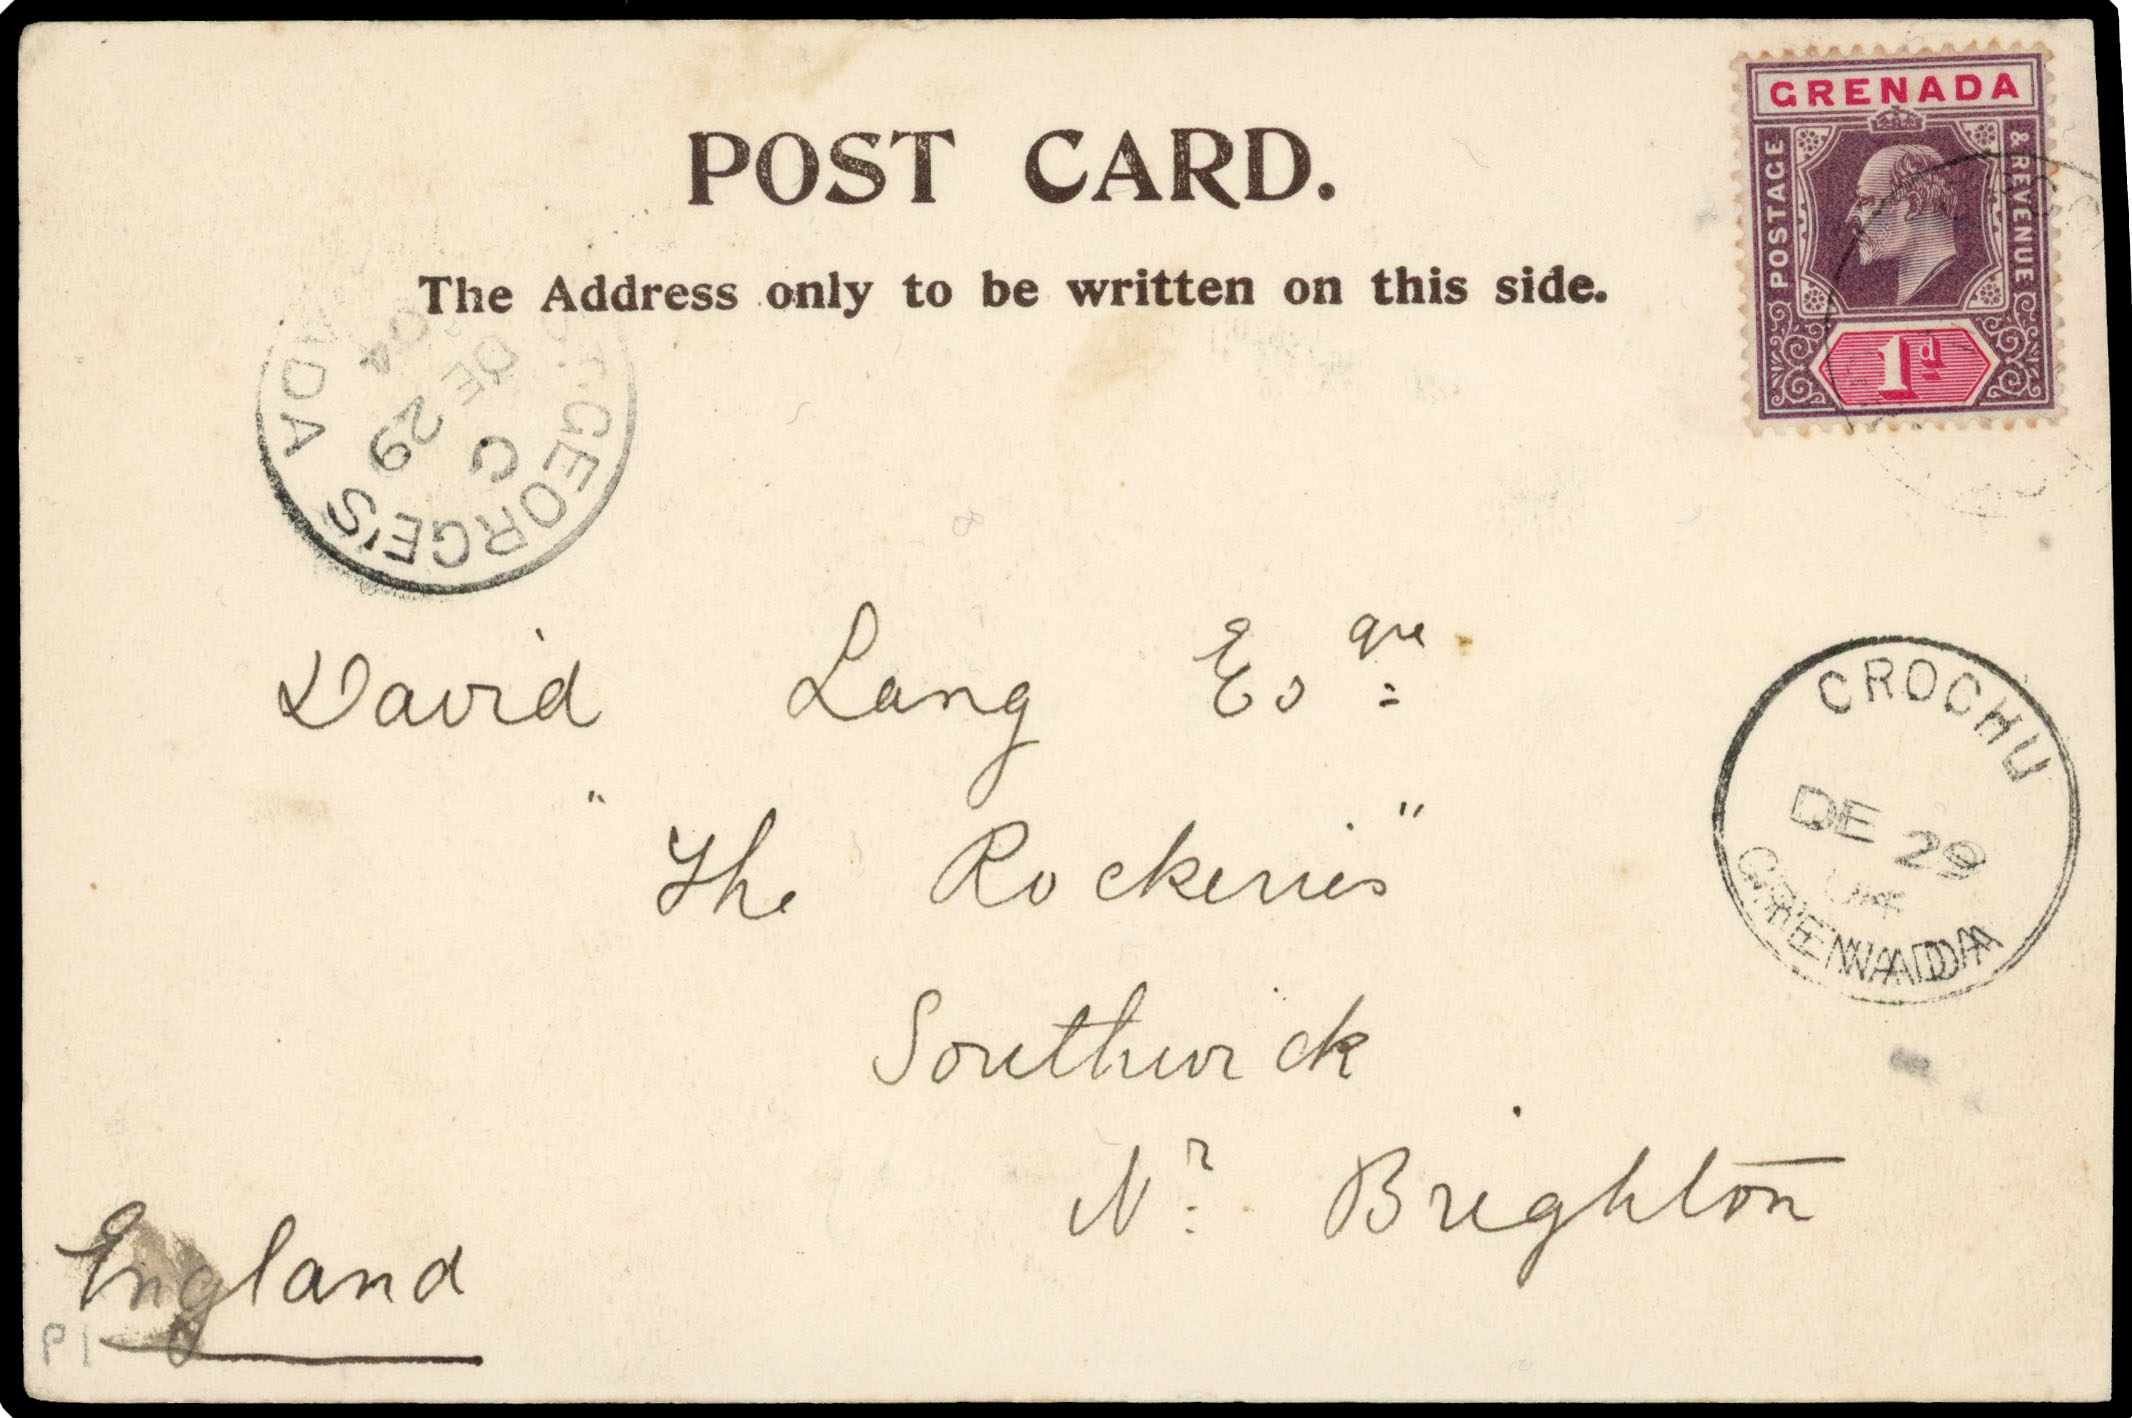 POST CARD.
The Address only to be written on this side.
GRENADA
POSTAGE
& REVENUE
1d
ST. GEORGE'S
C
DE 29
04
ADA
David Lang Esqre
"The Rockeries"
Southwick
Nr. Brighton
England
CROCHU
DE 29
04
GRENADA
P1